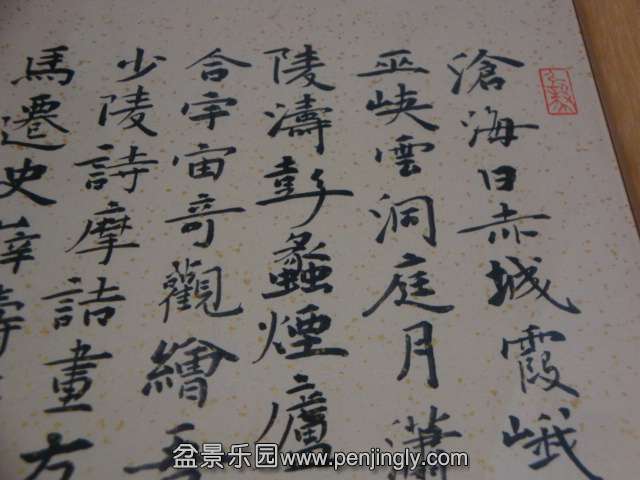 滄海日赤城霞峨
巫峡雲洞庭月瀟
陵濤彭蠡煙廬
合宇宙奇觀繪吾
少陵詩摩詰畫左
馬遷史薛濤
盆景乐园www.penjingly.com